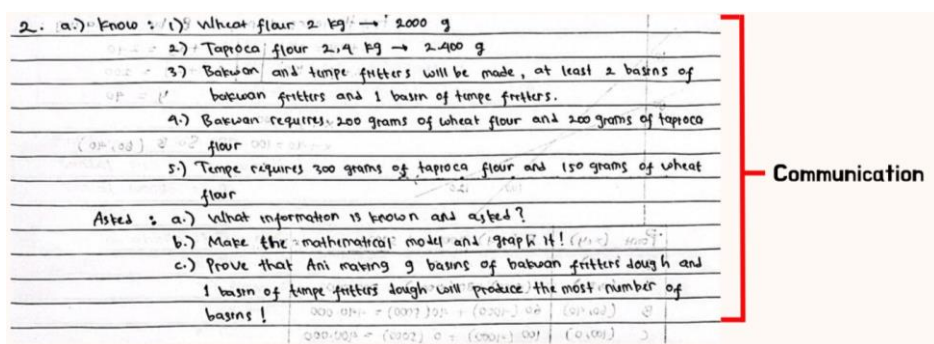 2. a.) Know : 1) Wheat flour 2 kg → 2000 g
2) Tapioca flour 2,4 kg → 2.400 g
3) Bakwan and tempe fritters will be made, at least 2 basins of
bakwan fritters and 1 basin of tempe fritters.
4.) Bakwan requires 200 grams of wheat flour and 200 grams of tapioca
flour
5.) Tempe requires 300 grams of tapioca flour and 150 grams of wheat
flour
Asked : a.) What information is known and asked?
b.) Make the mathematical model and graph it!
c.) Prove that Ani making 9 basins of bakwan fritters dough and
1 basin of tempe fritters dough will produce the most number of
basins!
Communication